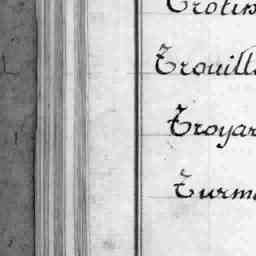 Trotin
Trouill
Troyar
Turm